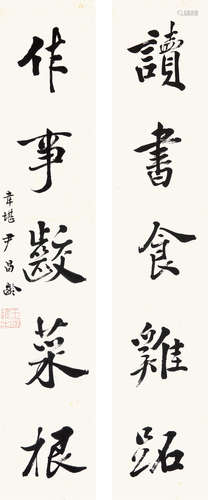 讀書食雞跖
作事齩菜根
韋堪尹昌齡